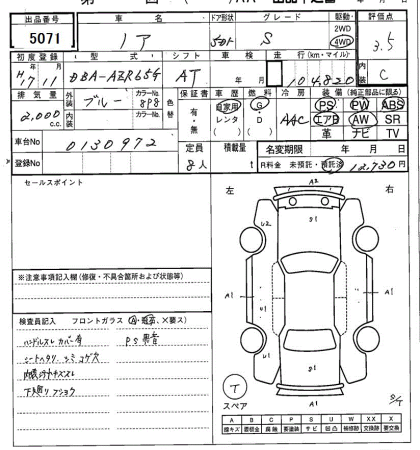 出品番号 車名 ドア形状 グレード 駆動 評価点
5071 ノア 5Dr S 2WD 4WD 3.5
初度登録 型式 シフト 車検 走行 (km・マイル) 内装
H 17年 11月 DBA-AZR65G AT 年 月 104,820 C
排気量 外装 ブルー カラーNo. 8P8 色替 保証書 車歴 燃料 冷房 装備 (純正部品に限る)
2,000 c.c. 内装 カラーNo. 有・無 自家用 レンタ G D AAC PS PW ABS
エアB AW SR
革 ナビ TV
車台No 0130972 定員 積載量 名変期限 年 月 日
登録No 8人 t R料金 未預託・預託済 12,730円
セールスポイント 左 右
A2
S1
U2
A1 A1
A1
U1
S1
A1
※注意事項記入欄 (修復・不具合箇所および状態等)
検査員記入 フロントガラス (A・飛石、X要ス)
ハンドルスレ カバー有 PS 異音
シートヘタリ、シミ、コゲ穴
内装 キズスレ
下廻り フショク
T
スペア
S/T
A B C P S U W X XX X
線キズ 要板金 腐蝕 要塗装 サビ 凹凸 補修跡 交換跡 要交換